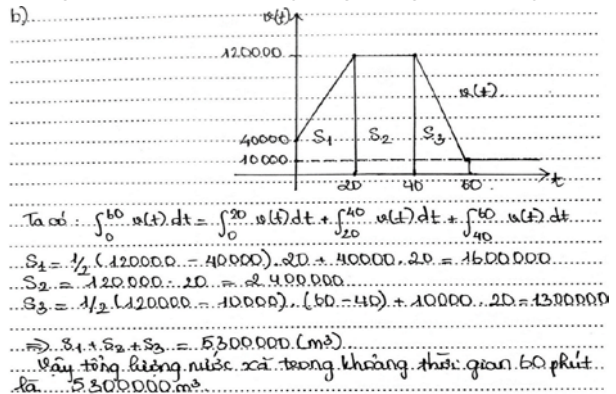 b)
v(t)
120000
v(t)
40000 S₁ S₂ S₃
10000
20 40 60 t
Ta có : ∫₀⁶⁰ v(t) dt = ∫₀²⁰ v(t) dt + ∫₂₀⁴⁰ v(t) dt + ∫₄₀⁶⁰ v(t) dt
S₁ = 1/2 (120000 - 40000) . 20 + 40000 . 20 = 1600000
S₂ = 120000 . 20 = 2400000
S₃ = 1/2 (120000 - 10000) . (60 - 40) + 10000 . 20 = 1300000
=> S₁ + S₂ + S₃ = 5300000 (m³)
Vậy tổng lượng nước xả trong khoảng thời gian 60 phút
là 5300000 m³